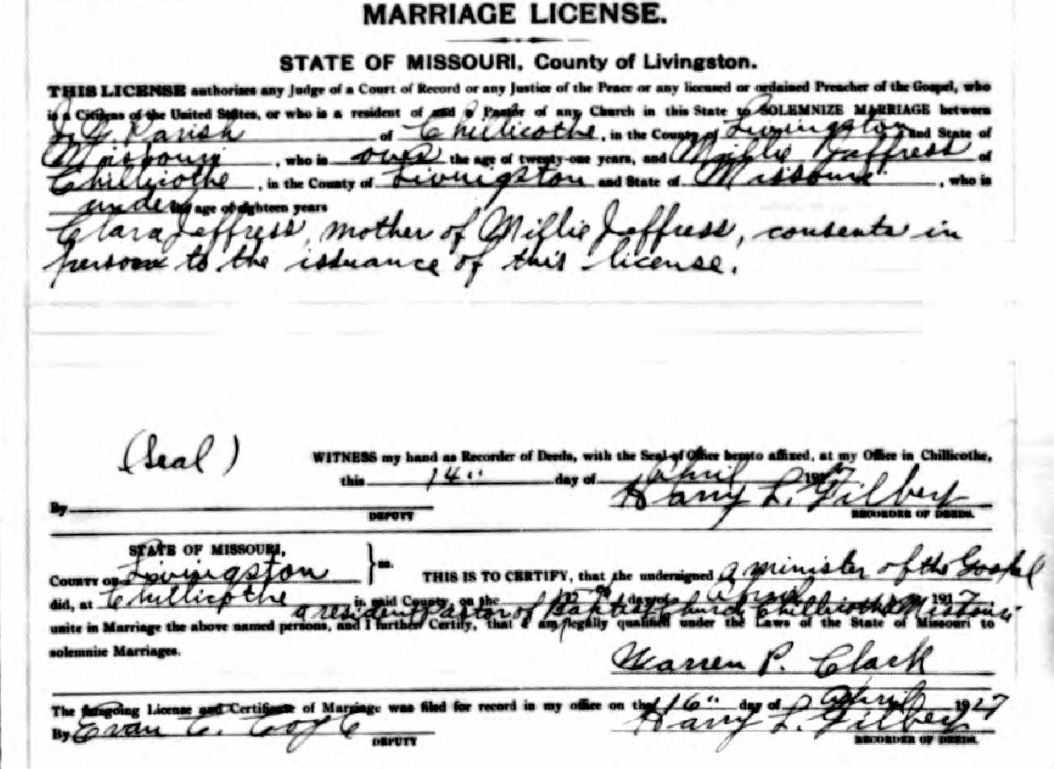 MARRIAGE LICENSE.
STATE OF MISSOURI, County of Livingston.
THIS LICENSE authorizes any Judge of a Court of Record or any Justice of the Peace or any licensed or ordained Preacher of the Gospel, who
is a Citizen of the United States, or who is a resident of and a Pastor of any Church in this State to SOLEMNIZE MARRIAGE between
G. Parish of Chillicothe, in the County of Livingston and State of
Missouri, who is over the age of twenty-one years, and Millie Jeffress of
Chillicothe, in the County of Livingston and State of Missouri, who is
under the age of eighteen years
Clara Jeffress, mother of Millie Jeffress, consents in
person to the issuance of this license.
(Seal) WITNESS my hand as Recorder of Deeds, with the Seal of Office hereto affixed, at my Office in Chillicothe,
this 14" day of April 1927
By Harry L. Gilbert
DEPUTY RECORDER OF DEEDS.
STATE OF MISSOURI,
COUNTY OF Livingston } ss. THIS IS TO CERTIFY, that the undersigned a minister of the Gospel
did, at Chillicothe in said County, on the 15 day of April 1927
a resident Pastor of Baptist Church Chillicothe Missouri
unite in Marriage the above named persons, and I further Certify, that I am legally qualified under the Laws of the State of Missouri to
solemnize Marriages.
Warren P. Clark
The foregoing License and Certificate of Marriage was filed for record in my office on the 16" day of April 1927
By Evan C. Harry L. Gilbert
DEPUTY RECORDER OF DEEDS.